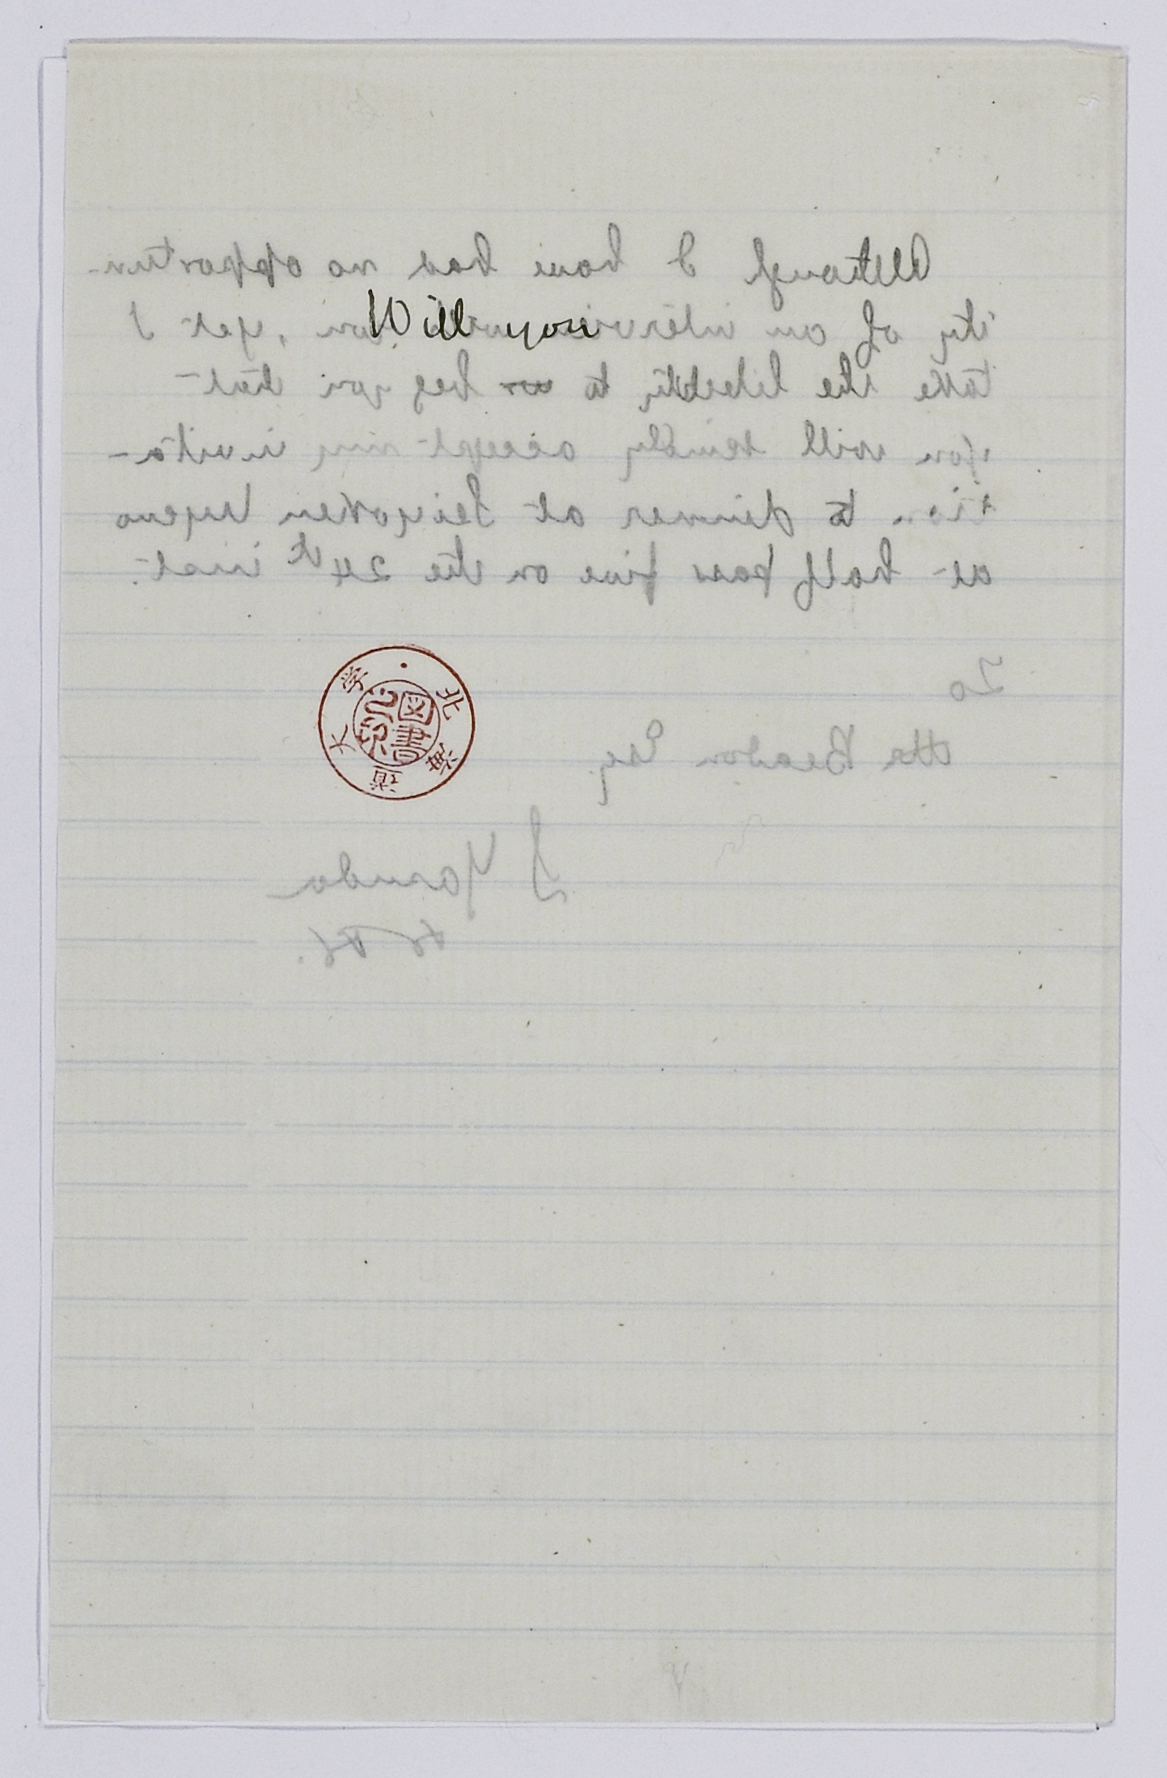 Although I have had no opportun-
ity of an interview with you, yet I
Will you
take the liberty to beg you that
you will kindly accept my invita-
tion to dinner at Seiyoken Uyeno
at half pass five on the 24th inst.
To
Beadon Esq.
J Yasuda
北海道大学
図書